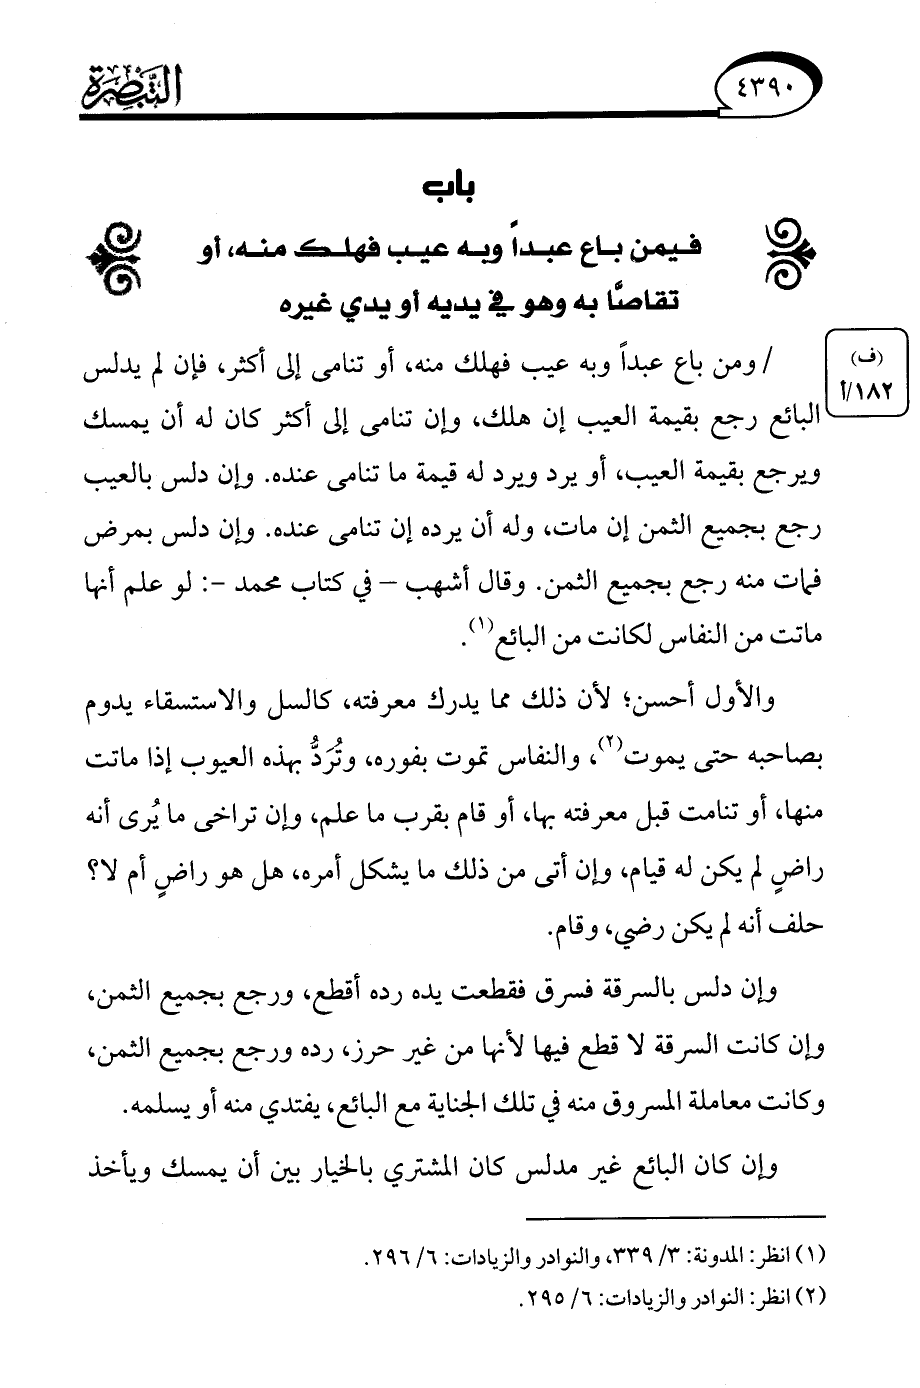 التبصرة
٤٣٩٠
باب
فيمن باع عبداً وبه عيب فهلك منه، أو
تقاصَّا به وهو في يديه أو يدي غيره
(ف)
١٨٢/أ
/ ومن باع عبداً وبه عيب فهلك منه، أو تنامى إلى أكثر، فإن لم يدلس
البائع رجع بقيمة العيب إن هلك، وإن تنامى إلى أكثر كان له أن يمسك
ويرجع بقيمة العيب، أو يرد ويرد له قيمة ما تنامى عنده. وإن دلس بالعيب
رجع بجميع الثمن إن مات، وله أن يرده إن تنامى عنده. وإن دلس بمرض
فمات منه رجع بجميع الثمن. وقال أشهب - في كتاب محمد -: لو علم أنها
ماتت من النفاس لكانت من البائع(١).
والأول أحسن؛ لأن ذلك مما يدرك معرفته، كالسل والاستسقاء يدوم
بصاحبه حتى يموت(٢)، والنفاس تموت بفوره، وتُرَدُّ بهذه العيوب إذا ماتت
منها، أو تنامت قبل معرفته بها، أو قام بقرب ما علم، وإن تراخى ما يُرى أنه
راضٍ لم يكن له قيام، وإن أتى من ذلك ما يشكل أمره، هل هو راضٍ أم لا؟
حلف أنه لم يكن رضي، وقام.
وإن دلس بالسرقة فسرق فقطعت يده رده أقطع، ورجع بجميع الثمن،
وإن كانت السرقة لا قطع فيها لأنها من غير حرز، رده ورجع بجميع الثمن،
وكانت معاملة المسروق منه في تلك الجناية مع البائع، يفتدي منه أو يسلمه.
وإن كان البائع غير مدلس كان المشتري بالخيار بين أن يمسك ويأخذ
(١) انظر: المدونة: ٣/ ٣٣٩، والنوادر والزيادات: ٦/ ٢٩٦.
(٢) انظر: النوادر والزيادات: ٦/ ٢٩٥.